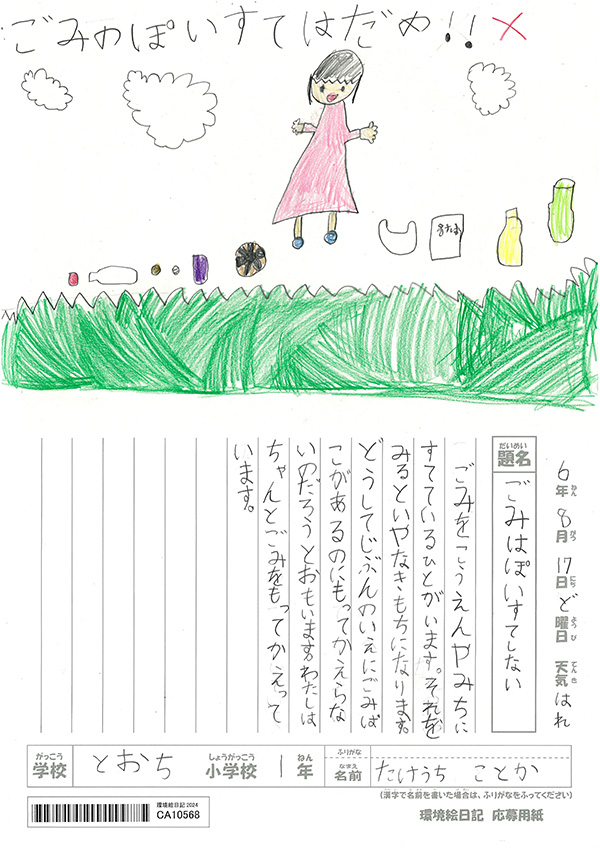 ごみのぽいすてはだめ!!×
きたね
6年 8月 17日 ど曜日 天気 はれ
ねん がつ にち ようび てんき
だいめい
題名 ごみはぽいすてしない
ごみをこうえんやみちに
すてているひとがいます。それを
みるといやなきもちになります。
どうしてじぶんのいえにごみば
こがあるのにもってかえらな
いのだろうとおもいます。わたしは
ちゃんとごみをもってかえって
います。
がっこう しょうがっこう ねん ふりがな
学校 とおち 小学校 1年 なまえ 名前 たけうち ことか
(漢字で名前を書いた場合は、ふりがなをふってください)
環境絵日記 2024
CA10568
環境絵日記 応募用紙